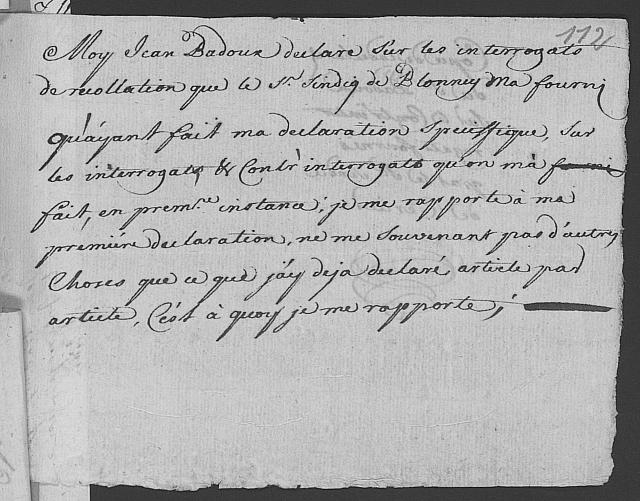 112
Moy Jean Badoux declare sur les interrogats
de recollation que le Sr. Sindiq de Blonney ma fourni
qu'ayant fait ma declaration speussifique, sur
les interrogats & Contr'interrogats qu'on m'a fourni
fait, en premre. instance; je me rapporte à ma
première declaration, ne me souvenant pas d'autres
Choses que ce que j'ay deja declaré article par
article, C'est à quoy je me rapporte;